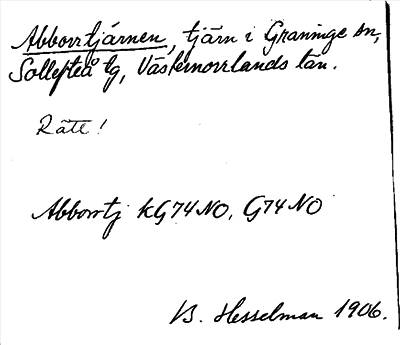 Abborrtjärnen, tjärn i Graninge sn,
Sollefteå tg, Västernorrlands län.
Rätt!
Abborrtj kG74NO, G74NO
B. Hesselman 1906.